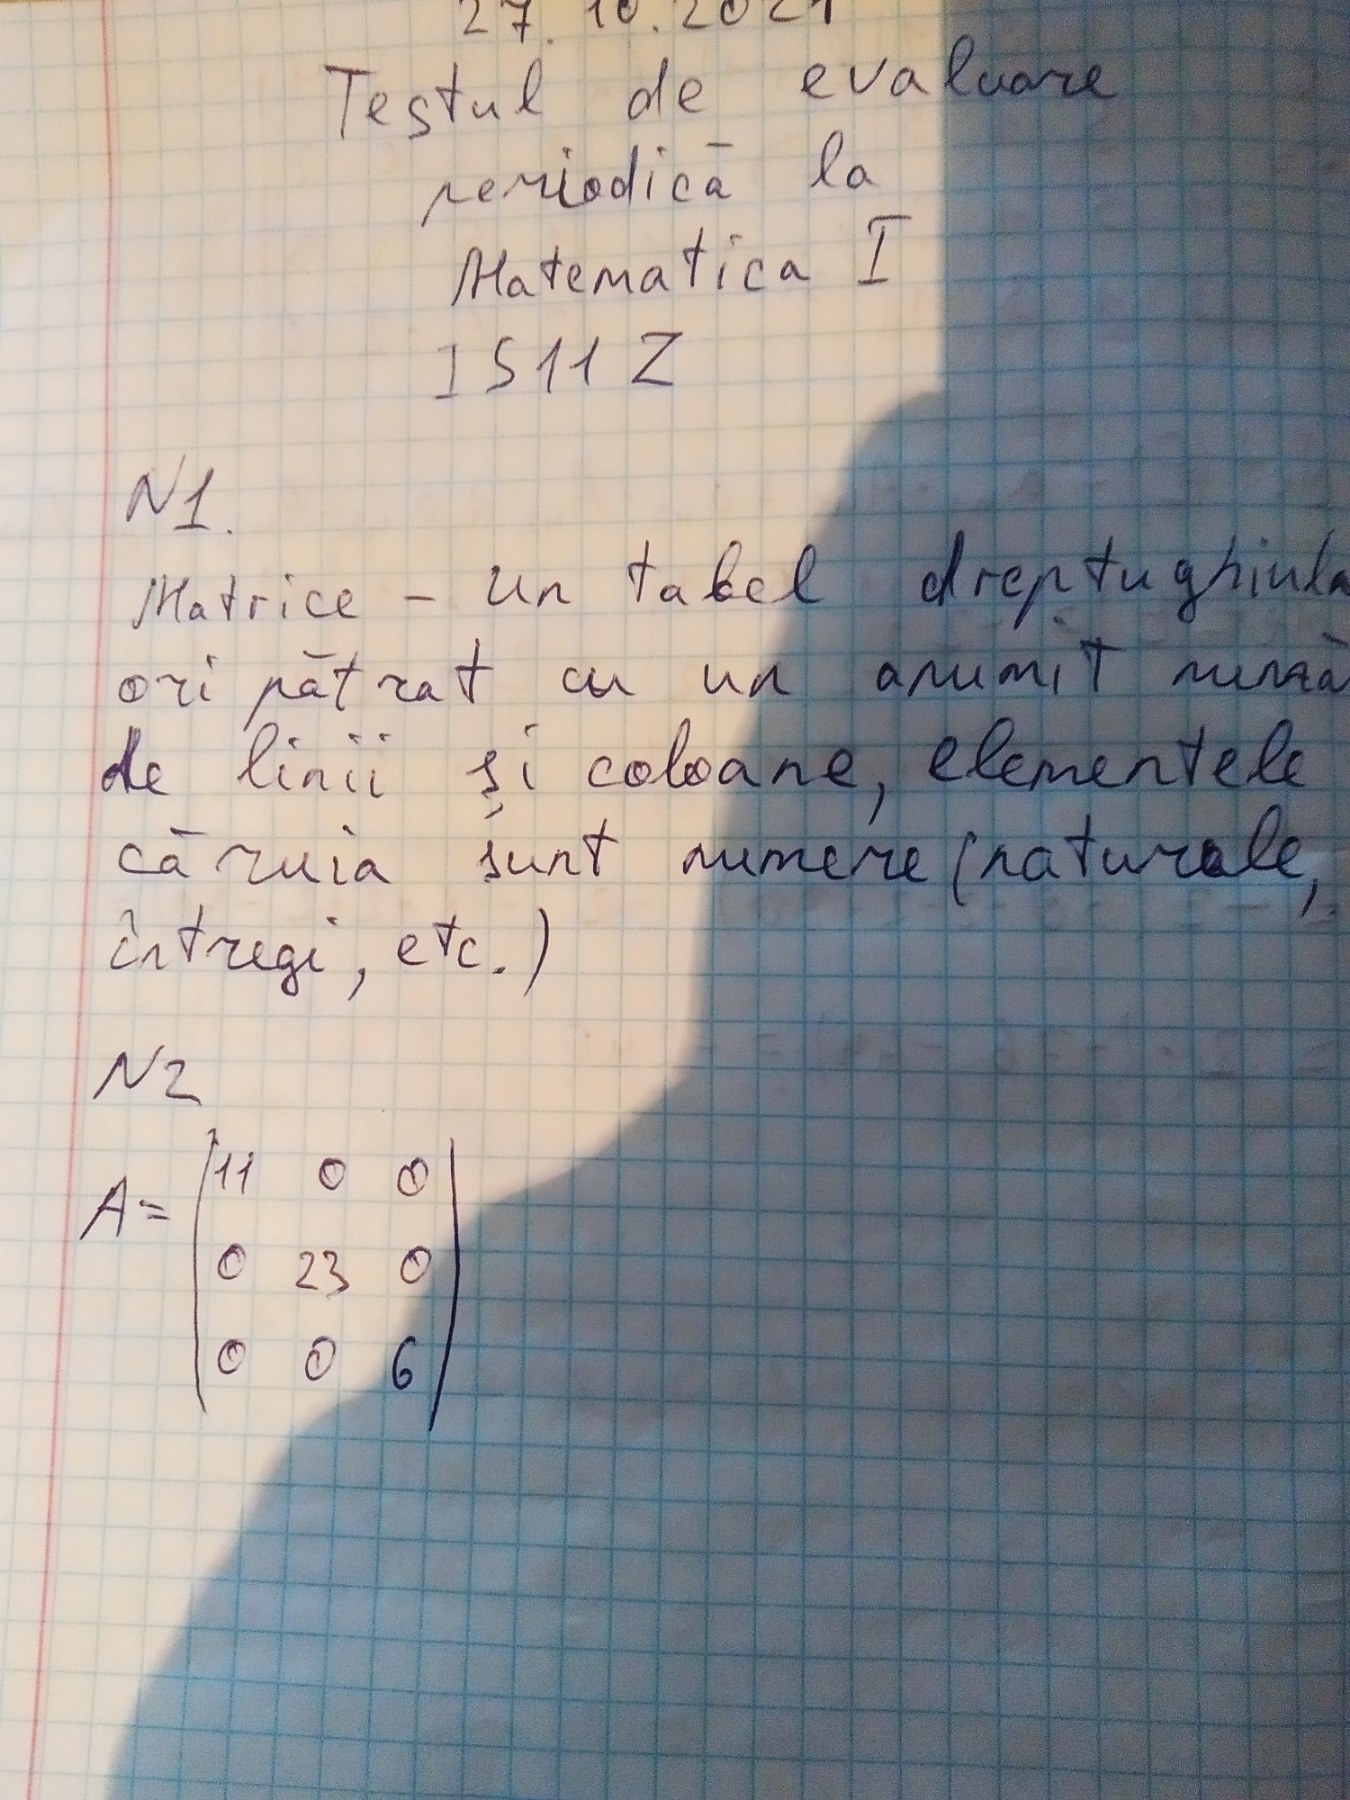 27.10.2021
Testul de evaluare
periodică la
Matematica I
IS11Z
N1.
Matrice - un tabel dreptughiula
ori pătrat cu un anumit numă
de linii și coloane, elementele
căruia sunt numere (naturale,
întregi, etc.)
N2
A= 11 0 0
0 23 0
0 0 6